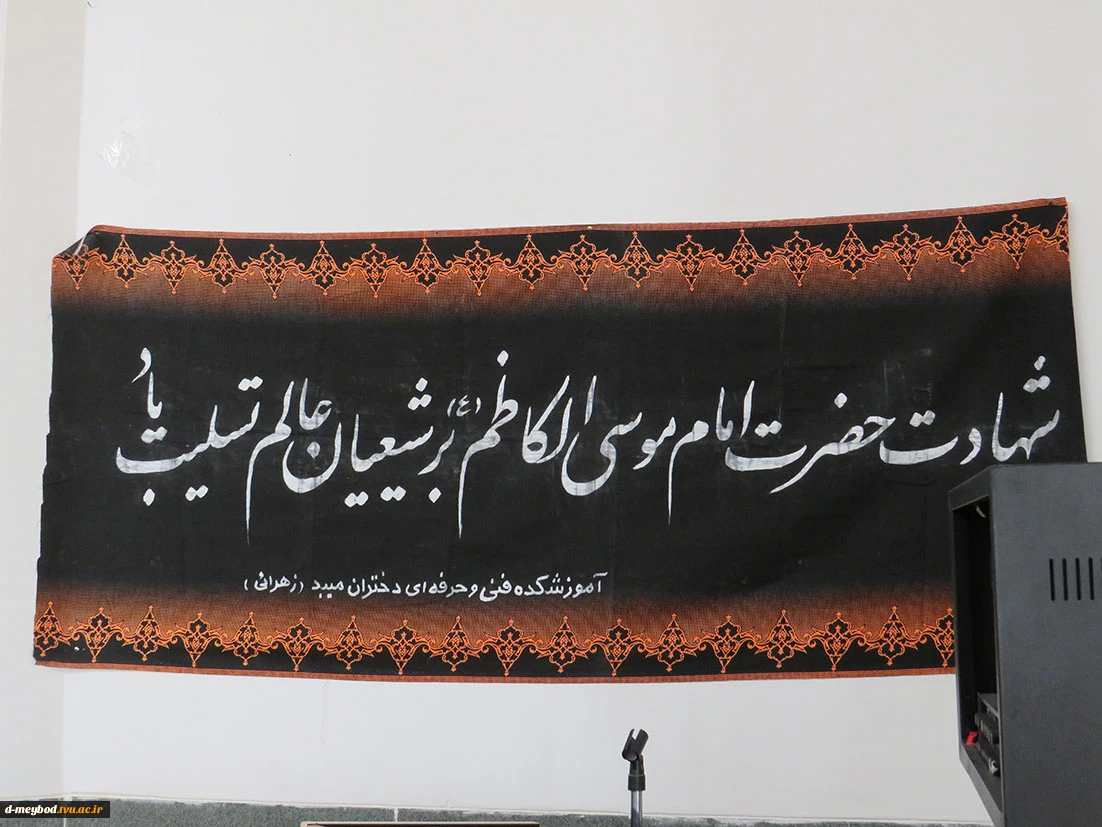 شهادت حضرت امام موسی الکاظم (ع) بر شیعیان عالم تسلیت باد
آموزشکده فنی و حرفه ای دختران میبد (زهرائی)
d-meybod.tvu.ac.ir